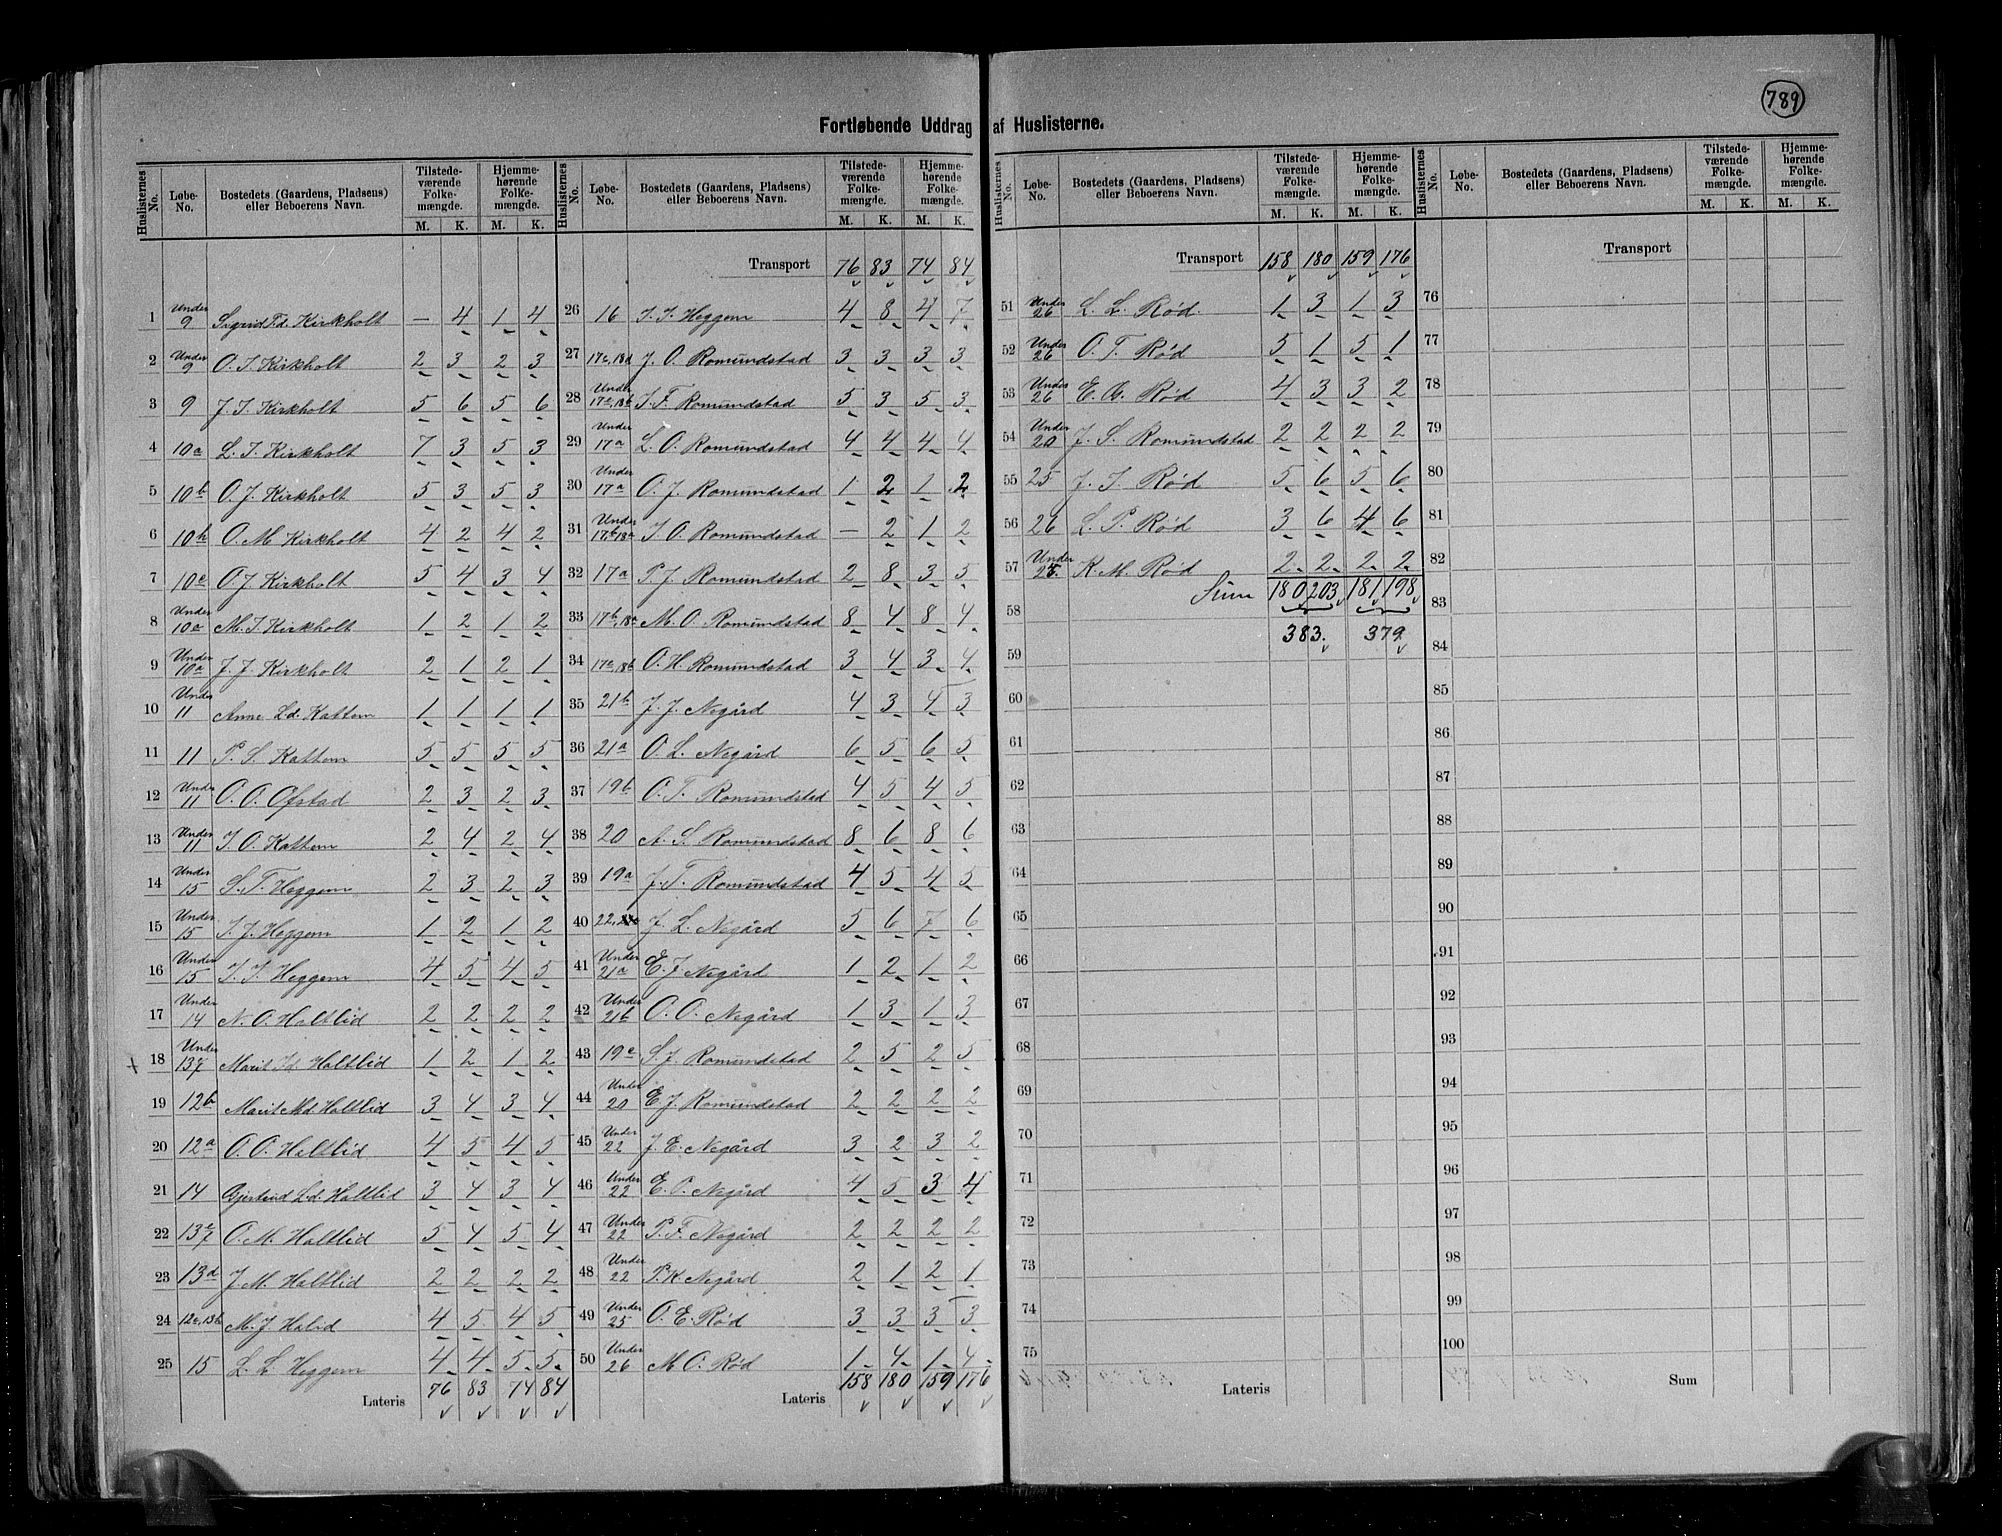 789
Fortløbende Uddrag af Huslisterne.
Huslisternes No. | Løbe-No. | Bostedets (Gaardens, Pladsens) eller Beboerens Navn. | Tilstedeværende Folkemængde. M. K. | Hjemmehørende Folkemængde. M. K.
1 Under 9 Sigrid Td. Kirkholt — 4 1 4
2 Under 9 O. T. Kirkholt 2 3 2 3
3 9 J. T. Kirkholt 5 6 5 6
4 10a L. T. Kirkholt 7 3 5 3
5 10b O. J. Kirkholt 5 3 5 3
6 10b O. M. Kirkholt 4 2 4 2
7 10c O. J. Kirkholt 5 4 3 4
8 Under 10a M. T. Kirkholt 1 2 1 2
9 Under 10a J. J. Kirkholt 2 1 2 1
10 Under 11 Anne Ld. Kattem 1 1 1 1
11 11 P. S. Kattem 5 5 5 5
12 Under 11 O. O. Ofstad 2 3 2 3
13 Under 11 J. O. Kattem 2 4 2 4
14 Under 15 S. T. Heggem 2 3 2 3
15 Under 15 T. J. Heggem 1 2 1 2
16 Under 15 T. T. Heggem 4 5 4 5
17 Under 14 N. O. Haltlid 2 2 2 2
18 Under 13 Marit Haltlid 1 2 1 2
19 12b Marit Md Haltlid 3 4 3 4
20 12a O. O. Haltlid 4 5 4 5
21 14 Gjertrud Ld. Haltlid 3 4 3 4
22 13 O. M. Haltlid 5 4 5 4
23 13d J. M. Haltlid 2 2 2 2
24 12c, 13b M. J. Halid 4 5 4 5
25 15 L. L. Heggem 4 4 5 5
Lateris 76 83 74 84
Huslisternes No. | Løbe-No. | Bostedets (Gaardens, Pladsens) eller Beboerens Navn. | Tilstedeværende Folkemængde. M. K. | Hjemmehørende Folkemængde. M. K.
Transport 76 83 74 84
26 16 T. T. Heggem 4 8 4 7
27 17c, 18d J. O. Romundstad 3 3 3 3
28 Under 17c, 18b S. F. Romundstad 5 3 5 3
29 Under 17a L. O. Romundstad 4 4 4 4
30 Under 17a O. J. Romundstad 1 2 1 2
31 Under 17b, 18a T. O. Romundstad — 2 1 2
32 17a P. J. Romundstad 2 8 3 5
33 17b, 18a M. O. Romundstad 8 4 8 4
34 17c, 18b O. H. Romundstad 3 4 3 4
35 21b J. J. Negård 4 3 4 3
36 21a O. L. Negård 6 5 6 5
37 19b O. T. Romundstad 4 5 4 5
38 20 A. S. Romundstad 8 6 8 6
39 19a J. T. Romundstad 4 5 4 5
40 22, J. L. Negård 5 6 7 6
41 Under 21a E. J. Negård 1 2 1 2
42 Under 21b O. O. Negård 1 3 1 3
43 19c S. J. Romundstad 2 5 2 5
44 Under 20 E. J. Romundstad 2 2 2 2
45 Under 22 J. E. Negård 3 2 3 2
46 Under 22 E. O. Negård 4 5 3 4
47 Under 22 P. F. Negård 2 2 2 2
48 Under 22 P. K. Negård 2 1 2 1
49 Under 25 O. E. Rød 3 3 3 3
50 Under 26 M. O. Rød 1 4 1 4
Lateris 158 180 159 176
Huslisternes No. | Løbe-No. | Bostedets (Gaardens, Pladsens) eller Beboerens Navn. | Tilstedeværende Folkemængde. M. K. | Hjemmehørende Folkemængde. M. K.
Transport 158 180 159 176
51 Under 26 L. L. Rød 1 3 1 3
52 Under 26 O. T. Rød 5 1 5 1
53 Under 26 E. A. Rød 4 3 3 2
54 Under 20 J. S. Romundstad 2 2 2 2
55 25 J. T. Rød 5 6 5 6
56 26 L. P. Rød 3 6 4 6
57 Under 25 K. M. Rød 2 2 2 2
Sum 180 203 181 198
58
383. 379
59
60
61
62
63
64
65
66
67
68
69
70
71
72
73
74
75
Lateris
Huslisternes No. | Løbe-No. | Bostedets (Gaardens, Pladsens) eller Beboerens Navn. | Tilstedeværende Folkemængde. M. K. | Hjemmehørende Folkemængde. M. K.
Transport
76
77
78
79
80
81
82
83
84
85
86
87
88
89
90
91
92
93
94
95
96
97
98
99
100
Sum